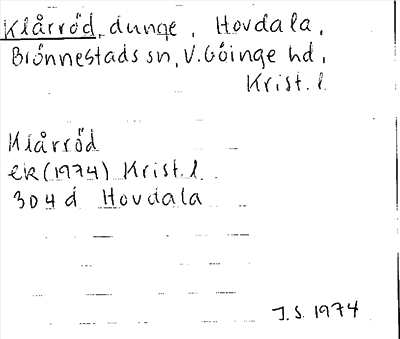 Klårröd, dunge, Hovdala,
Brönnestads sn, V. Göinge hd,
Krist. l.
Klårröd
ek (1974) Krist. l.
304 d Hovdala
J. S. 1974